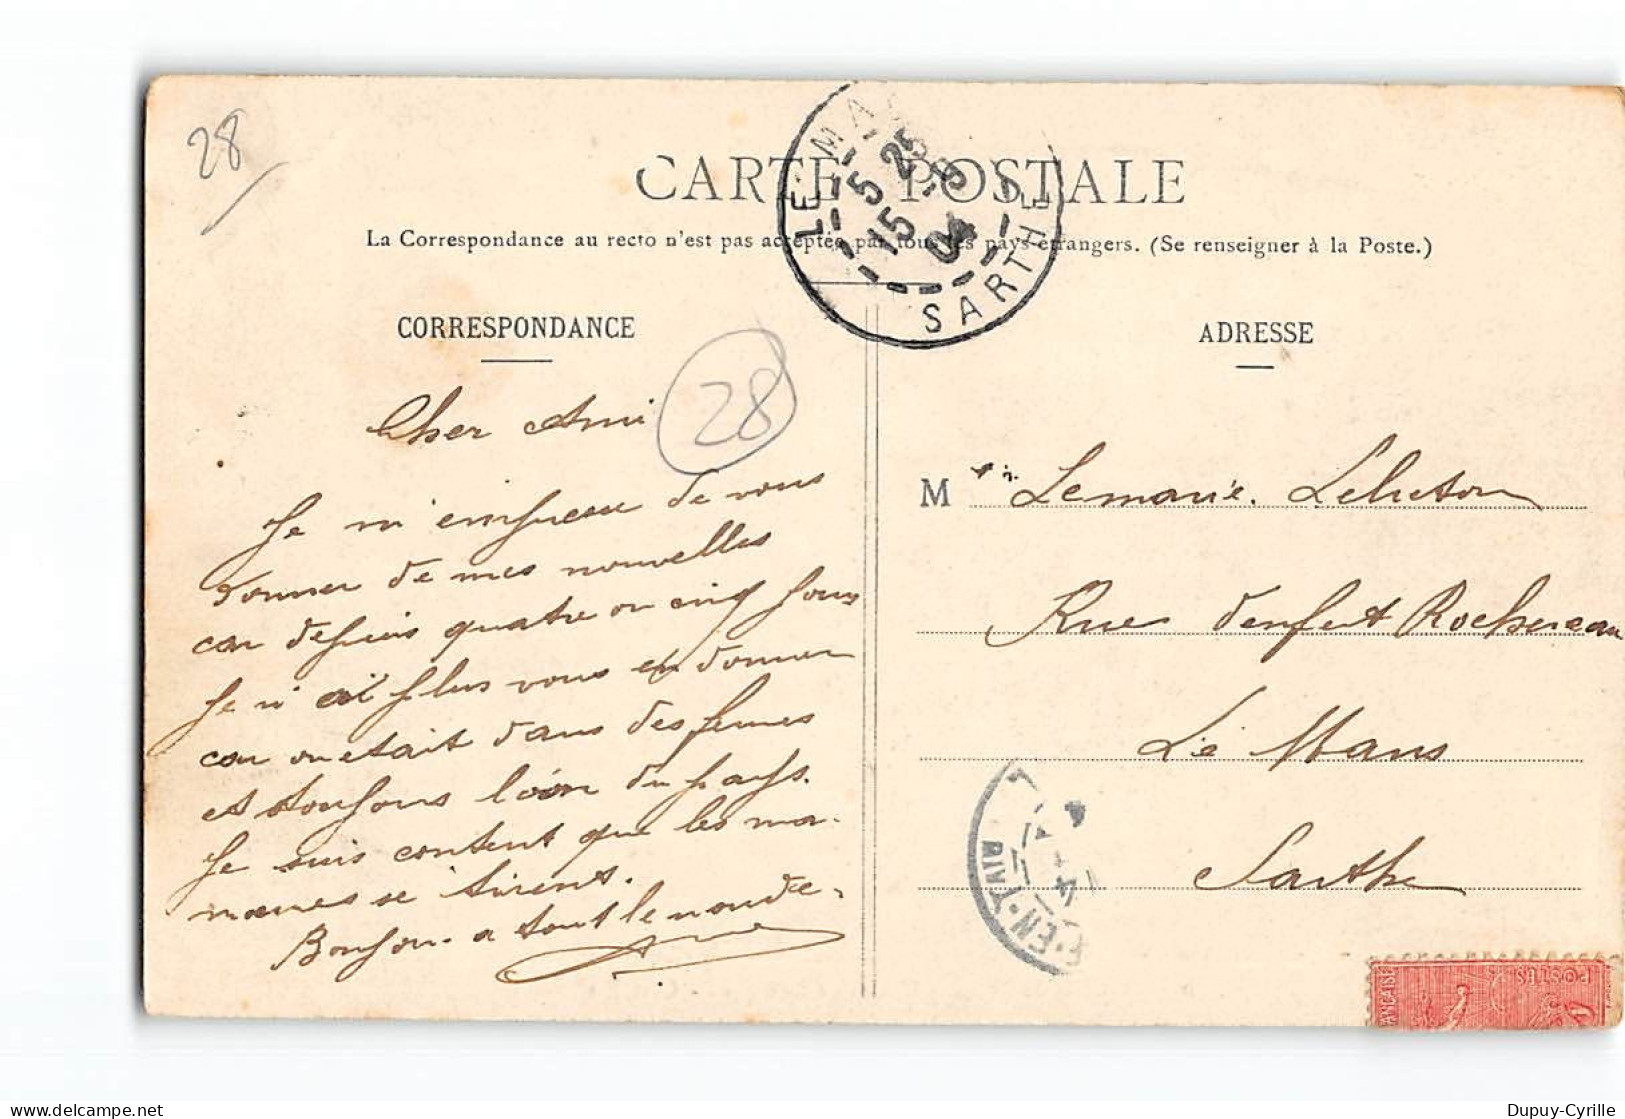 28
CARTE POSTALE
La Correspondance au recto n'est pas acceptée par tous les pays étrangers. (Se renseigner à la Poste.)
LE MA
5 25
15 -9
04
SARTHE
CORRESPONDANCE
28
Cher Ami
Je m'empresse de vous
donner de mes nouvelles
car depuis quatre ou cinq jours
Je n'ai plus vous en donner
car on était dans des fermes
et toujours loin du pays.
Je suis content que les ma-
nœuvres se tirent.
Bonjour a tout le monde.
ADRESSE
M Lemarié. Lebreton
Rue denfert Rochereau
Le Mans
Sarthe
E-EN-TARDI
POSTES
ANÇAISE
Dupuy-Cyrille